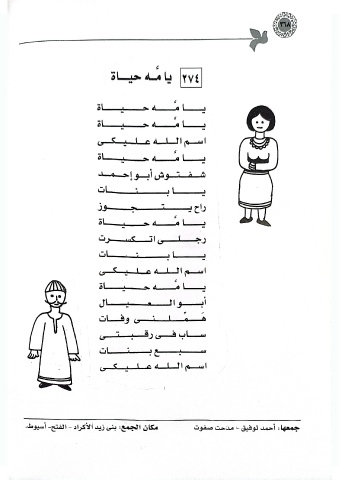 ٣٦٨
٢٧٤ يا مُّه حياة
يـا مُّـه حـيـاة
يـا مُّـه حـيـاة
اسم الله عليكى
يـا مُّـه حـيـاة
شفتوش أبو إحمد
يـا بـنـات
راح يـتـجـوز
يـا مُّـه حـيـاة
رجلى اتكسرت
يـا بـنـات
اسم الله عليكى
يـا مُّـه حـيـاة
أبو العيال
هَمِّلنى وفات
ساب فى رقبتى
سبع بنات
اسم الله عليكى
جمعها: أحمد توفيق - مدحت صفوت
مكان الجمع: بنى زيد الأكراد - الفتح - أسيوط.